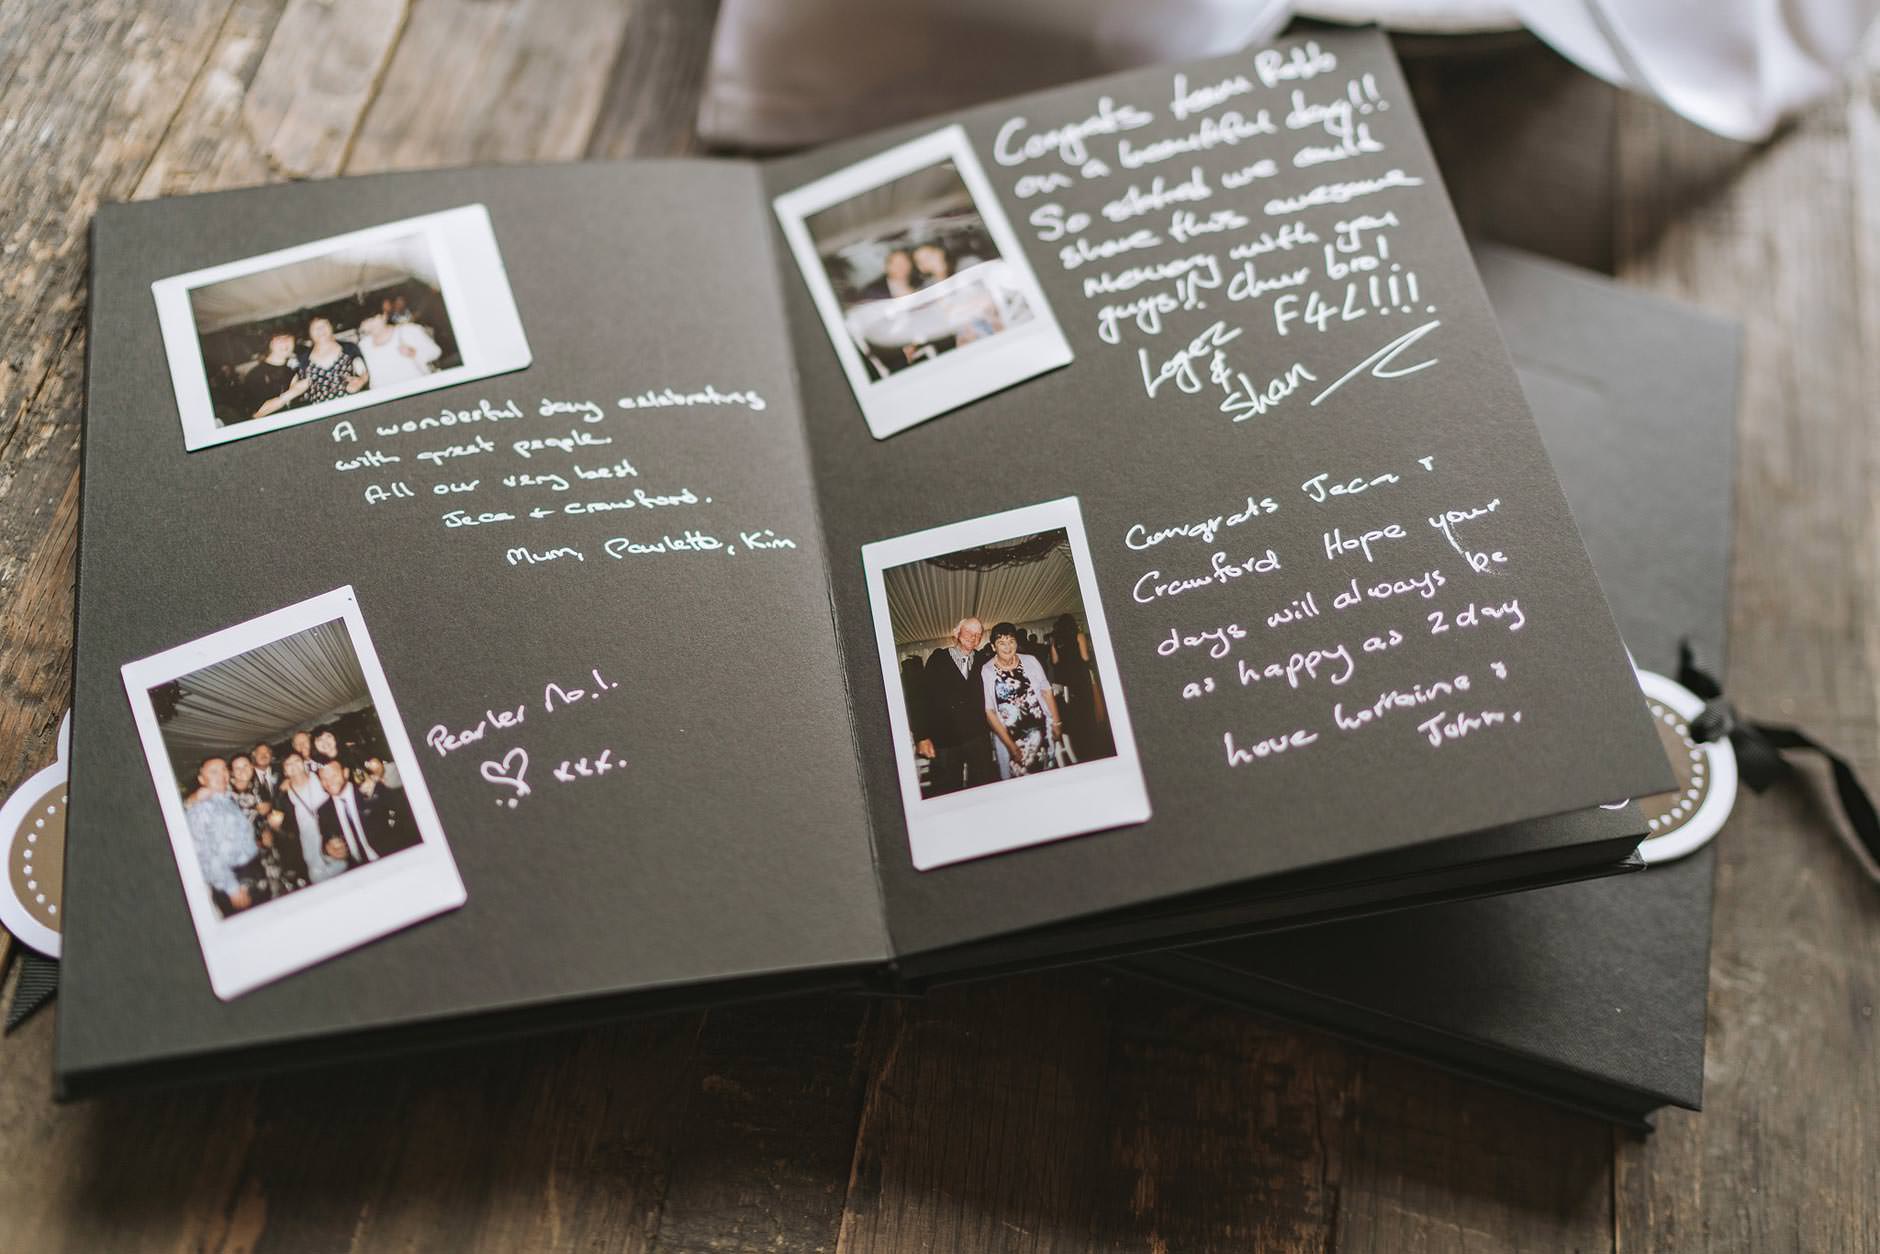 A wonderful day celebrating
with great people.
All our very best
Jeca + Crawford.
Mum, Paulette, Kim
Pearler No.1.
xxx.
Congrats team Robb
on a beautiful day!!
So stoked we could
share this awesome
memory with you
guys!! Chur bro!
F4L!!!
Logez
&
Shan
Congrats Jeca &
Crawford Hope your
days will always be
as happy as 2day
love Lorraine &
John.